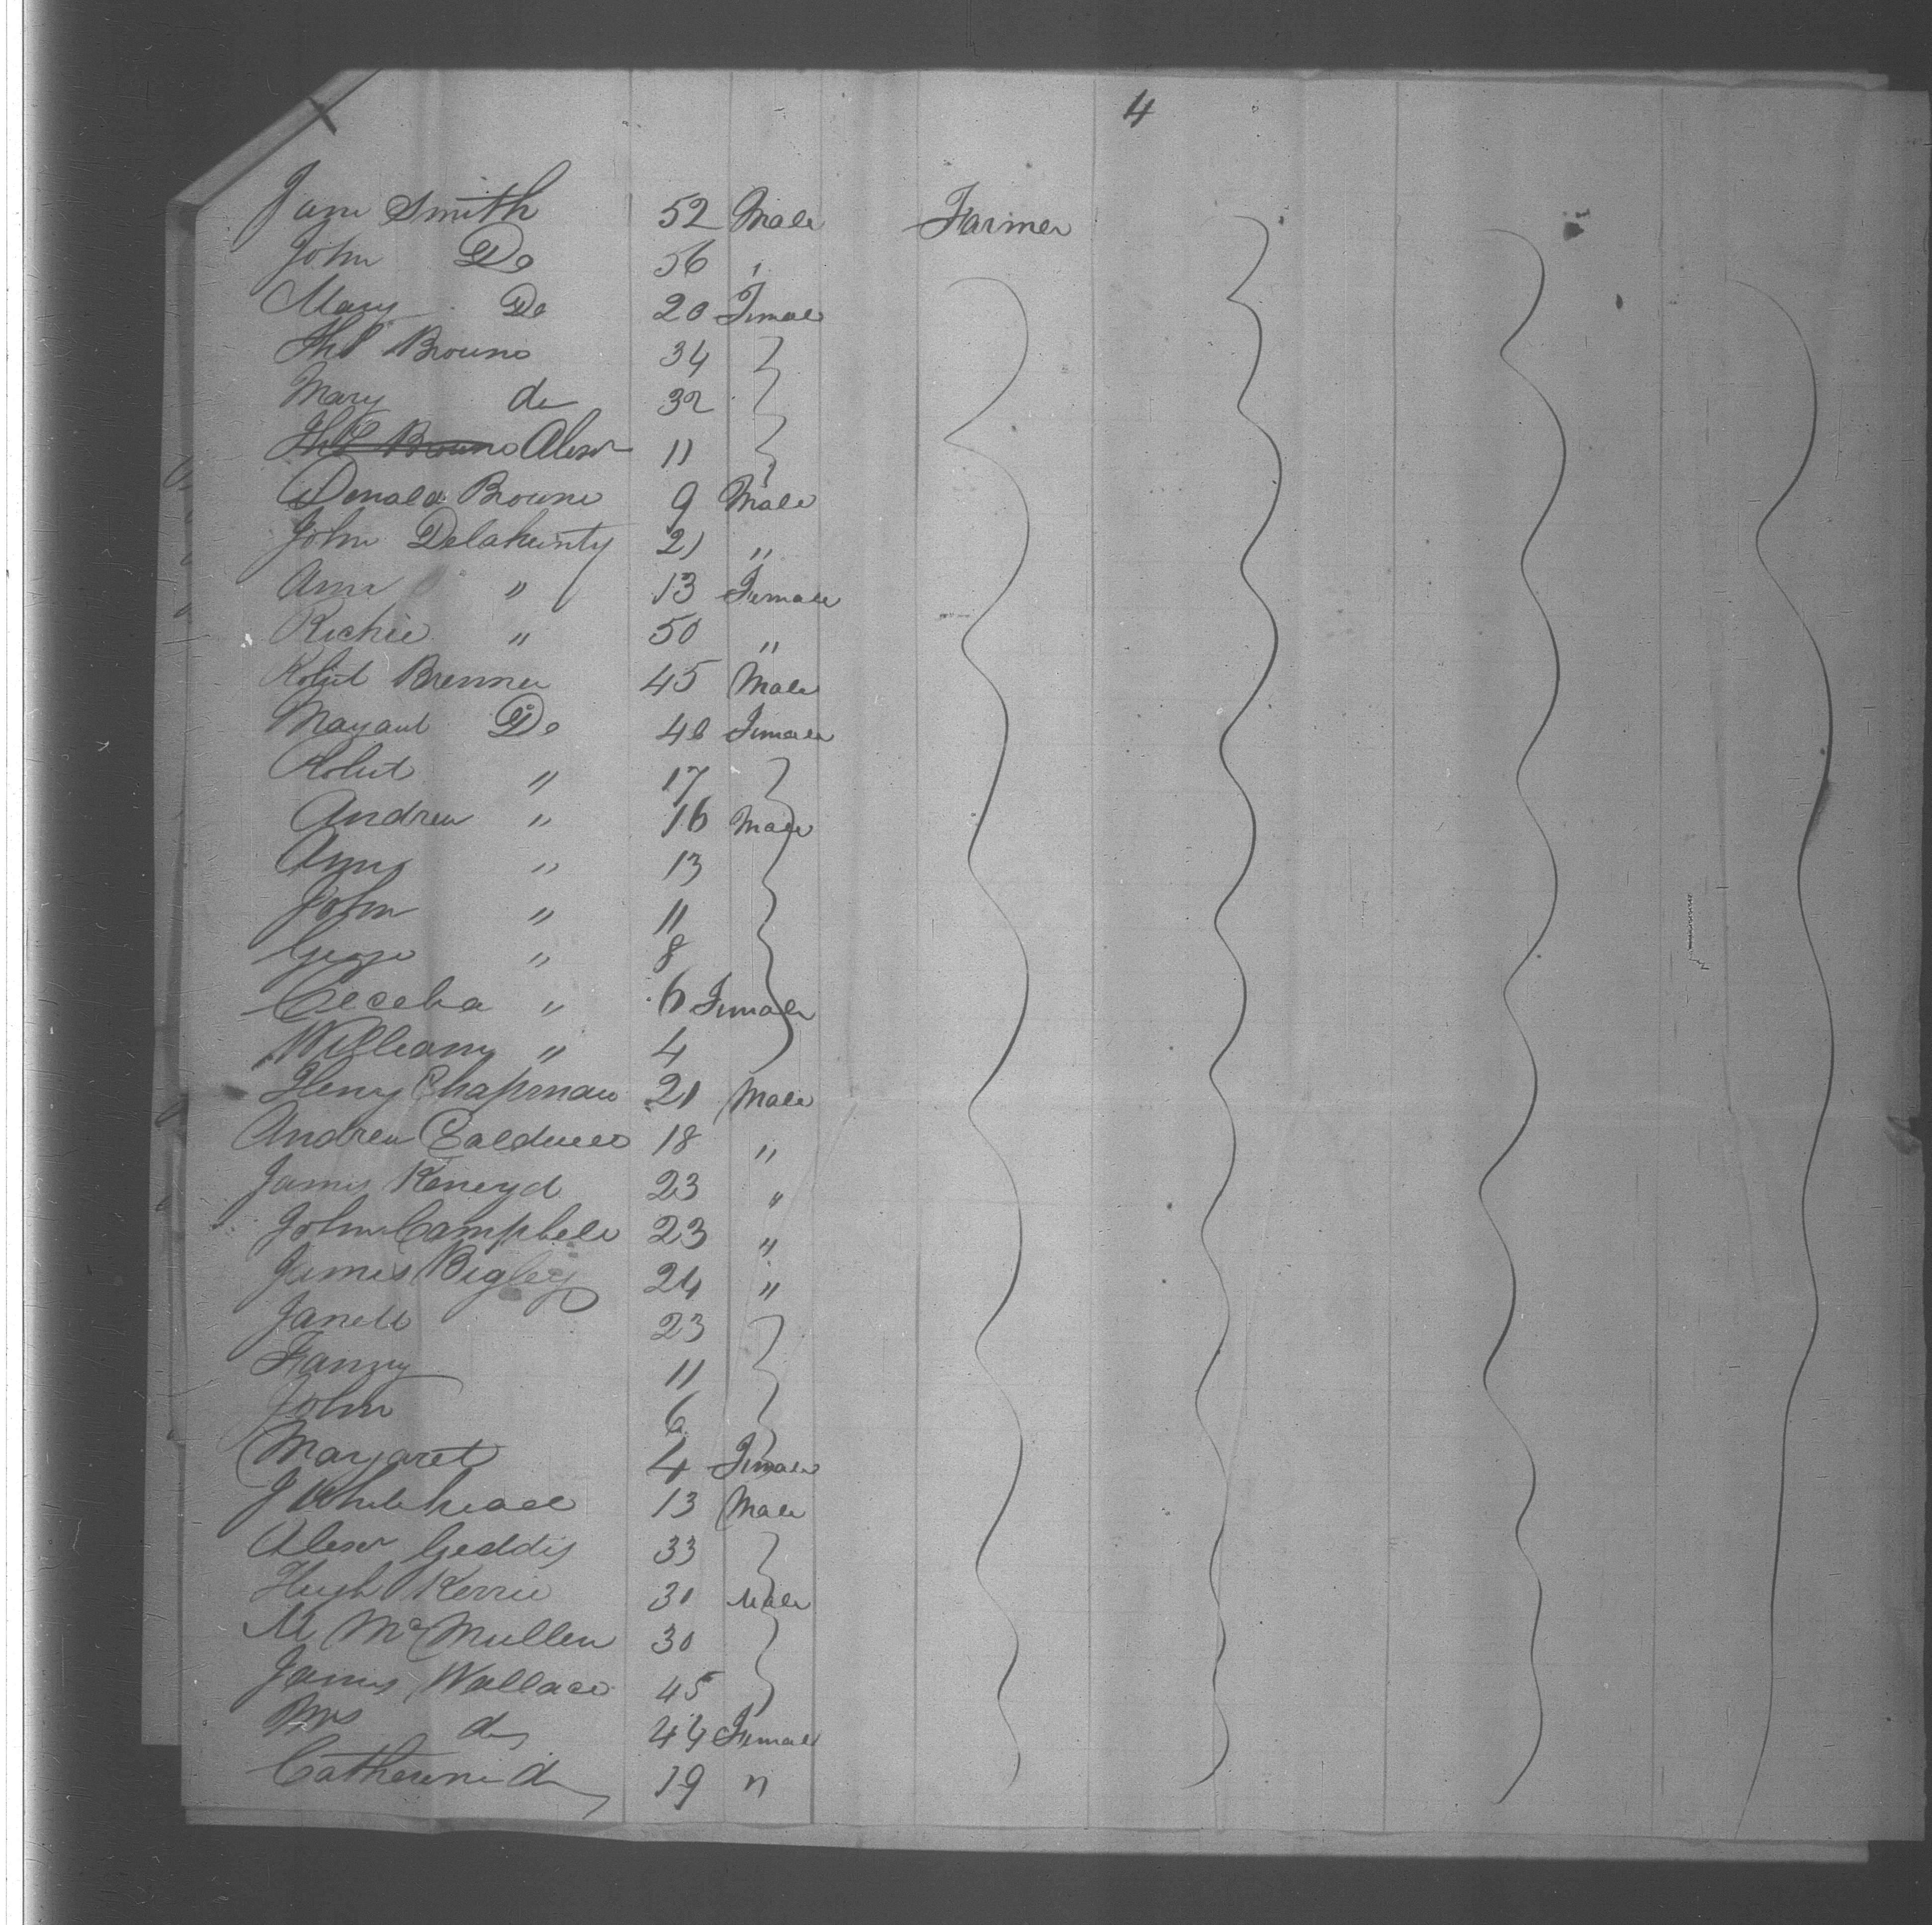 4
Jam Smith 52 Male Farmer
John Do 56 "
Mary Do 20 Female
Thos Browne 34
Mary do 32
Thos Browne Alexr 11
Donald Browne 9 Male
John Delahunty 21 "
Ann " 13 Female
Richie " 50 "
Robt Brenner 45 Male
Margaret Do 40 Female
Robert " 17
Andrew " 16 Male
" 13
John " 11
George " 8
Cecelia " 6 Female
William " 4
Henry Chapman 21 Male
Andrew Caldwell 18 "
James 23 "
John Campbell 23 "
James Bigley 24 "
Janett 23
Fanny 11
John 6
Margaret 4 Female
J Whitehead 13 Male
Alexr Geddis 33
Hugh Kerrie 31 Male
M McMullen 30
James Wallace 45
Mrs do 44 Female
Catherine do 19 "